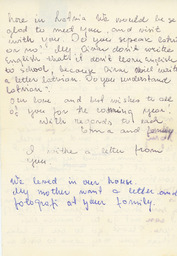 here in Latvia. We would be so
glad to meet you, and visit
with you. Do you speak
or no? My don't write
English that I don't learn english
to school, because write
a letter Latvian. Do you understand
Latvian?
Our love and best wishes to all
of you for the coming year,
with regards to each
and family
I write a letter from
you.
We lived in our house.
My mother want a letter and
fotografi at your family.